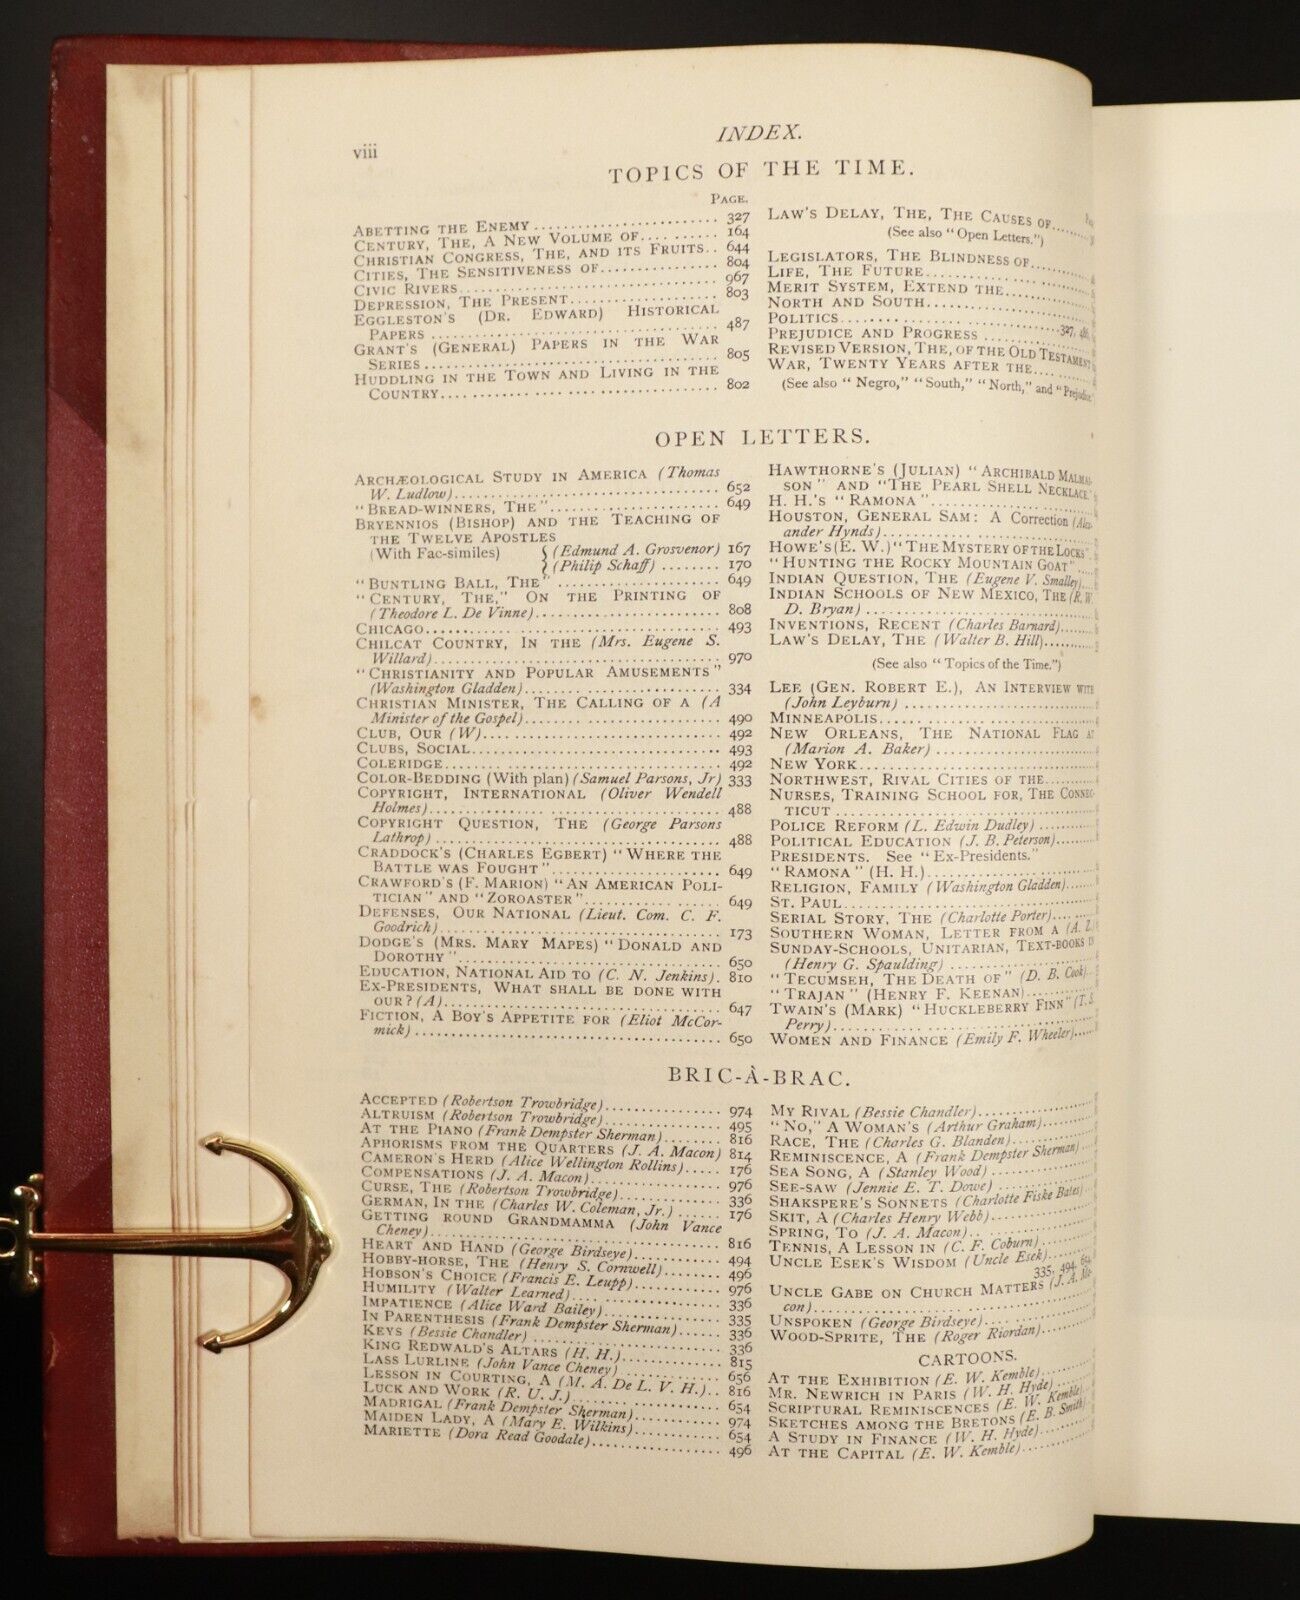 viii
INDEX.
TOPICS OF THE TIME.
PAGE.
ABETTING THE ENEMY 327
CENTURY, THE, A NEW VOLUME OF 164
CHRISTIAN CONGRESS, THE, AND ITS FRUITS 644
CITIES, THE SENSITIVENESS OF 804
CIVIC RIVERS 967
DEPRESSION, THE PRESENT 803
EGGLESTON'S (DR. EDWARD) HISTORICAL
PAPERS 487
GRANT'S (GENERAL) PAPERS IN THE WAR
SERIES 805
HUDDLING IN THE TOWN AND LIVING IN THE
COUNTRY 802
LAW'S DELAY, THE, THE CAUSES OF
(See also "Open Letters.")
LEGISLATORS, THE BLINDNESS OF
LIFE, THE FUTURE
MERIT SYSTEM, EXTEND THE
NORTH AND SOUTH
POLITICS 327, 486,
PREJUDICE AND PROGRESS
REVISED VERSION, THE, OF THE OLD TESTAMENT
WAR, TWENTY YEARS AFTER THE
(See also "Negro," "South," "North," and "Prejudice.")
OPEN LETTERS.
ARCHÆOLOGICAL STUDY IN AMERICA (Thomas
W. Ludlow) 652
"BREAD-WINNERS, THE" 649
BRYENNIOS (BISHOP) AND THE TEACHING OF
THE TWELVE APOSTLES
(With Fac-similes) { (Edmund A. Grosvenor) 167
(Philip Schaff) 170
"BUNTLING BALL, THE" 649
"CENTURY, THE," ON THE PRINTING OF
(Theodore L. De Vinne) 808
CHICAGO 493
CHILCAT COUNTRY, IN THE (Mrs. Eugene S.
Willard) 970
"CHRISTIANITY AND POPULAR AMUSEMENTS"
(Washington Gladden) 334
CHRISTIAN MINISTER, THE CALLING OF A (A
Minister of the Gospel) 490
CLUB, OUR (W) 492
CLUBS, SOCIAL 493
COLERIDGE 492
COLOR-BEDDING (With plan) (Samuel Parsons, Jr) 333
COPYRIGHT, INTERNATIONAL (Oliver Wendell
Holmes) 488
COPYRIGHT QUESTION, THE (George Parsons
Lathrop) 488
CRADDOCK'S (CHARLES EGBERT) "WHERE THE
BATTLE WAS FOUGHT" 649
CRAWFORD'S (F. MARION) "AN AMERICAN POLI-
TICIAN" AND "ZOROASTER" 649
DEFENSES, OUR NATIONAL (Lieut. Com. C. F.
Goodrich) 173
DODGE'S (MRS. MARY MAPES) "DONALD AND
DOROTHY" 650
EDUCATION, NATIONAL AID TO (C. N. Jenkins) 810
EX-PRESIDENTS, WHAT SHALL BE DONE WITH
OUR? (A) 647
FICTION, A BOY'S APPETITE FOR (Eliot McCor-
mick) 650
HAWTHORNE'S (JULIAN) "ARCHIBALD MALMAI-
SON" AND "THE PEARL SHELL NECKLACE"
H. H.'S "RAMONA"
HOUSTON, GENERAL SAM: A Correction (Alex-
ander Hynds)
HOWE'S (E. W.) "THE MYSTERY OF THE LOCKS"
"HUNTING THE ROCKY MOUNTAIN GOAT"
INDIAN QUESTION, THE (Eugene V. Smalley)
INDIAN SCHOOLS OF NEW MEXICO, THE (R. W.
D. Bryan)
INVENTIONS, RECENT (Charles Barnard)
LAW'S DELAY, THE (Walter B. Hill)
(See also "Topics of the Time.")
LEE (GEN. ROBERT E.), AN INTERVIEW WITH
(John Leyburn)
MINNEAPOLIS
NEW ORLEANS, THE NATIONAL FLAG AT
(Marion A. Baker)
NEW YORK
NORTHWEST, RIVAL CITIES OF THE
NURSES, TRAINING SCHOOL FOR, THE CONNEC-
TICUT
POLICE REFORM (L. Edwin Dudley)
POLITICAL EDUCATION (J. B. Peterson)
PRESIDENTS. See "Ex-Presidents."
"RAMONA" (H. H.)
RELIGION, FAMILY (Washington Gladden)
ST. PAUL
SERIAL STORY, THE (Charlotte Porter)
SOUTHERN WOMAN, LETTER FROM A (A. Z.)
SUNDAY-SCHOOLS, UNITARIAN, TEXT-BOOKS IN
(Henry G. Spaulding)
"TECUMSEH, THE DEATH OF" (D. B. Cook)
"TRAJAN" (HENRY F. KEENAN)
TWAIN'S (MARK) "HUCKLEBERRY FINN" (T. S.
Perry)
WOMEN AND FINANCE (Emily F. Wheeler)
BRIC-À-BRAC.
ACCEPTED (Robertson Trowbridge) 974
ALTRUISM (Robertson Trowbridge) 495
AT THE PIANO (Frank Dempster Sherman) 816
APHORISMS FROM THE QUARTERS (J. A. Macon) 814
CAMERON'S HERD (Alice Wellington Rollins) 176
COMPENSATIONS (J. A. Macon) 976
CURSE, THE (Robertson Trowbridge) 336
GERMAN, IN THE (Charles W. Coleman, Jr.) 176
GETTING ROUND GRANDMAMMA (John Vance
Cheney) 816
HEART AND HAND (George Birdseye) 494
HOBBY-HORSE, THE (Henry S. Cornwell) 496
HOBSON'S CHOICE (Francis E. Leupp) 976
HUMILITY (Walter Learned) 336
IMPATIENCE (Alice Ward Bailey) 335
IN PARENTHESIS (Frank Dempster Sherman) 336
KEYS (Bessie Chandler) 336
KING REDWALD'S ALTARS (H. H.) 815
LASS LURLINE (John Vance Cheney) 656
LESSON IN COURTING, A (M. A. De L. V. H.) 816
LUCK AND WORK (R. U. J.) 654
MADRIGAL (Frank Dempster Sherman) 974
MAIDEN LADY, A (Mary E. Wilkins) 654
MARIETTE (Dora Read Goodale) 496
MY RIVAL (Bessie Chandler)
"NO," A WOMAN'S (Arthur Graham)
RACE, THE (Charles G. Blanden)
REMINISCENCE, A (Frank Dempster Sherman)
SEA SONG, A (Stanley Wood)
SEE-SAW (Jennie E. T. Dowe)
SHAKSPERE'S SONNETS (Charlotte Fiske Bates)
SKIT, A (Charles Henry Webb)
SPRING, TO (J. A. Macon)
TENNIS, A LESSON IN (C. F. Coburn)
UNCLE ESEK'S WISDOM (Uncle Esek)
335, 494, 654,
UNCLE GABE ON CHURCH MATTERS (J. A. Ma-
con)
UNSPOKEN (George Birdseye)
WOOD-SPRITE, THE (Roger Riordan)
CARTOONS.
AT THE EXHIBITION (E. W. Kemble)
MR. NEWRICH IN PARIS (W. H. Hyde)
SCRIPTURAL REMINISCENCES (E. W. Kemble)
SKETCHES AMONG THE BRETONS (E. B. Smith)
A STUDY IN FINANCE (W. H. Hyde)
AT THE CAPITAL (E. W. Kemble)